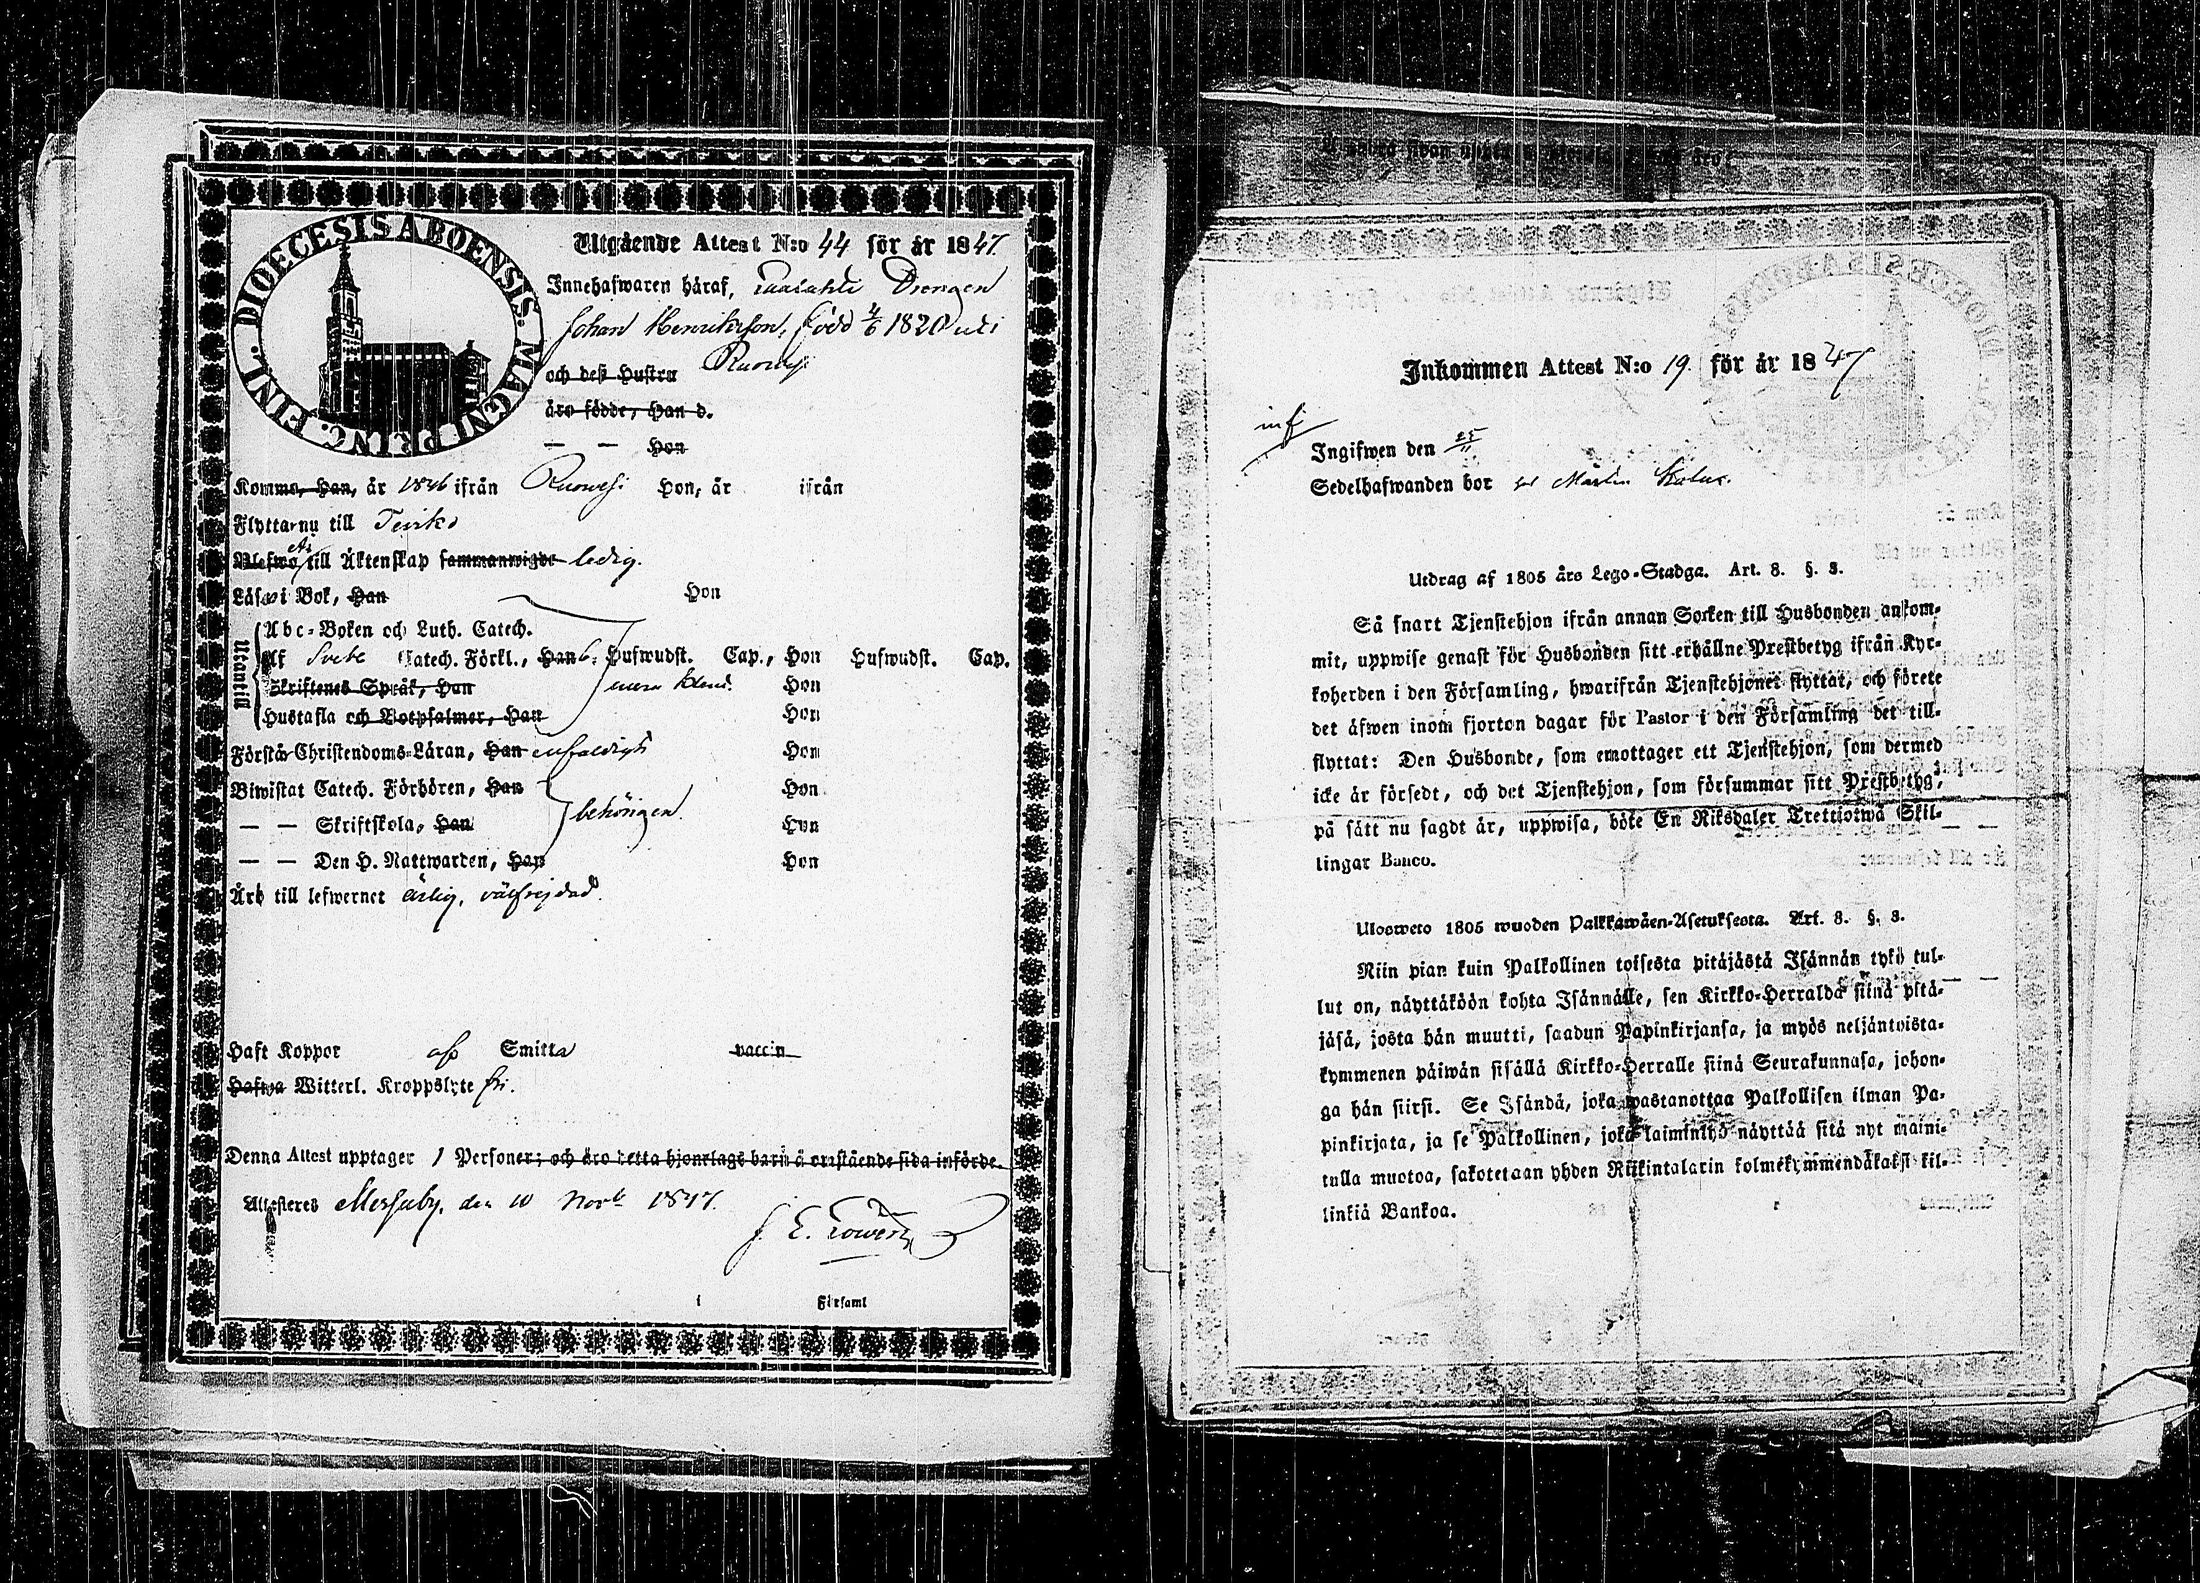 DIOECESIS ABOENSIS. MAGNI PRINC. FINL.
Utgående Attest N:o 44 för år 1847.
Innehafwaren häraf, Drengen
Johan Henriksson, född 4/6 1820 uti
och deß Hustru Ruovesi
äro födde, Han d.
— — Hon
Komma, Han, år 1846 ifrån Ruovesi Hon, år ifrån
Flyttar nu till
Är
till Äktenskap sammanwigde ledig.
Läser i Bok, Han Hon
Utantill
Abc-Boken och Luth. Catech.
Af Svebe Catech. Förkl., Han 6. Hufwudst. Cap., Hon Hufwudst. Cap.
Skriftenes Språk, Han Hon
Hustafla och Botpsalmer, Han Hon
Förstår Christendoms-Läran, Han enfaldigt Hon
Biwistat Catech. Förhören, Han Hon
— — Skriftskola, Han behörigen. Hon
— — Den H. Nattwarden, Han Hon
Äro till lefwernet ärlig, välfrejdad.
Haft Koppor af Smitta vaccin
Hafwa Witterl. Kroppslyte fri.
Denna Attest upptager 1 Personer; och äro detta hjonelags barn å omstående sida införde.
Attesteras Messuby, den 10 Nov. 1847.
i Församl
Inkommen Attest N:o 19. för år 1847
Ingifwen den 25/11
Sedelhafwanden bor på
Utdrag af 1805 års Lego-Stadga. Art. 8. §. 3.
Så snart Tjenstehjon ifrån annan Socken till Husbonden ankom-
mit, uppwise genast för Husbonden sitt erhållne Prestbetyg ifrån Kyr-
koherden i den Församling, hwarifrån Tjenstehjonet flyttat, och förete
det äfwen inom fjorton dagar för Pastor i den Församling det till-
flyttat: Den Husbonde, som emottager ett Tjenstehjon, som dermed
icke är försedt, och det Tjenstehjon, som försummar sitt Prestbetyg,
på sätt nu sagdt är, uppwisa, böte En Riksdaler Trettiotwå Skil-
lingar Banco.
Uloosweto 1805 wuoden Palkkawäen-Asetuksesta. Art. 8. §. 3.
Niin pian kuin Palkollinen toisesta pitäjästä Isännän tykö tul-
lut on, näyttäköön kohta Isännälle, sen Kirkko-Herralda siinä pitä-
jäsä, josta hän muutti, saadun Papinkirjansa, ja myös neljäntoista-
kymmenen päiwän sisällä Kirkko-Herralle siinä Seurakunnasa, johon-
ga hän siirsi. Se Isändä, joka wastanottaa Palkollisen ilman Pa-
pinkirjata, ja se Palkollinen, joka laiminlyö näyttää sitä nyt maini-
tulla muotoa, sakotetaan yhden Riikintalarin kolmekymmendäkaksi kil-
linkiä Bankoa.